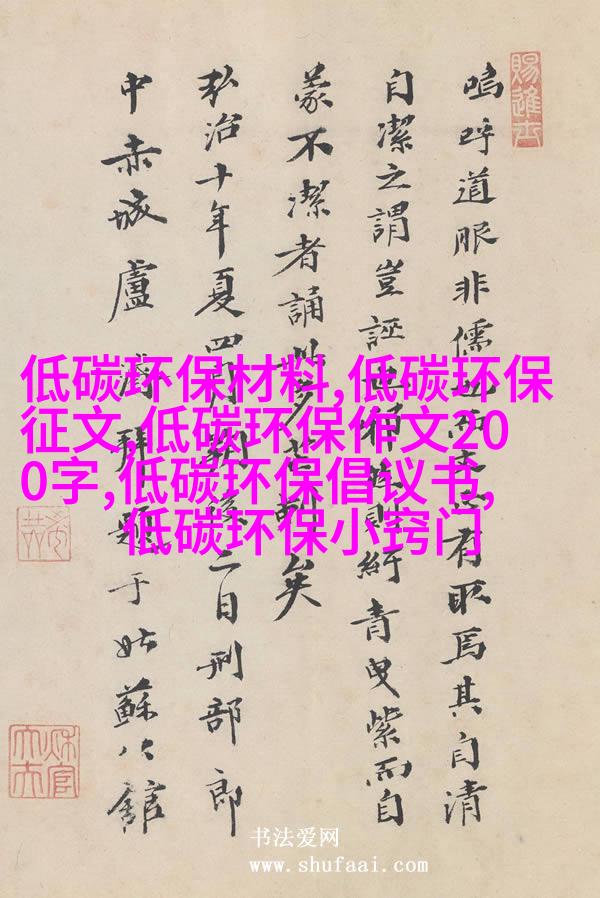 賜進士
嗚呼道服非儒有取焉其自清
自潔之謂豈誣則紆青曳紫而自
蒙不潔者誦矣
弘治十年夏四二日刑部郎
中赤城盧濬拜題于姑蘇公館
低碳环保材料,低碳环保
征文,低碳环保作文20
0字,低碳环保倡议书,
低碳环保小窍门
书法爱网
www.shufaai.com